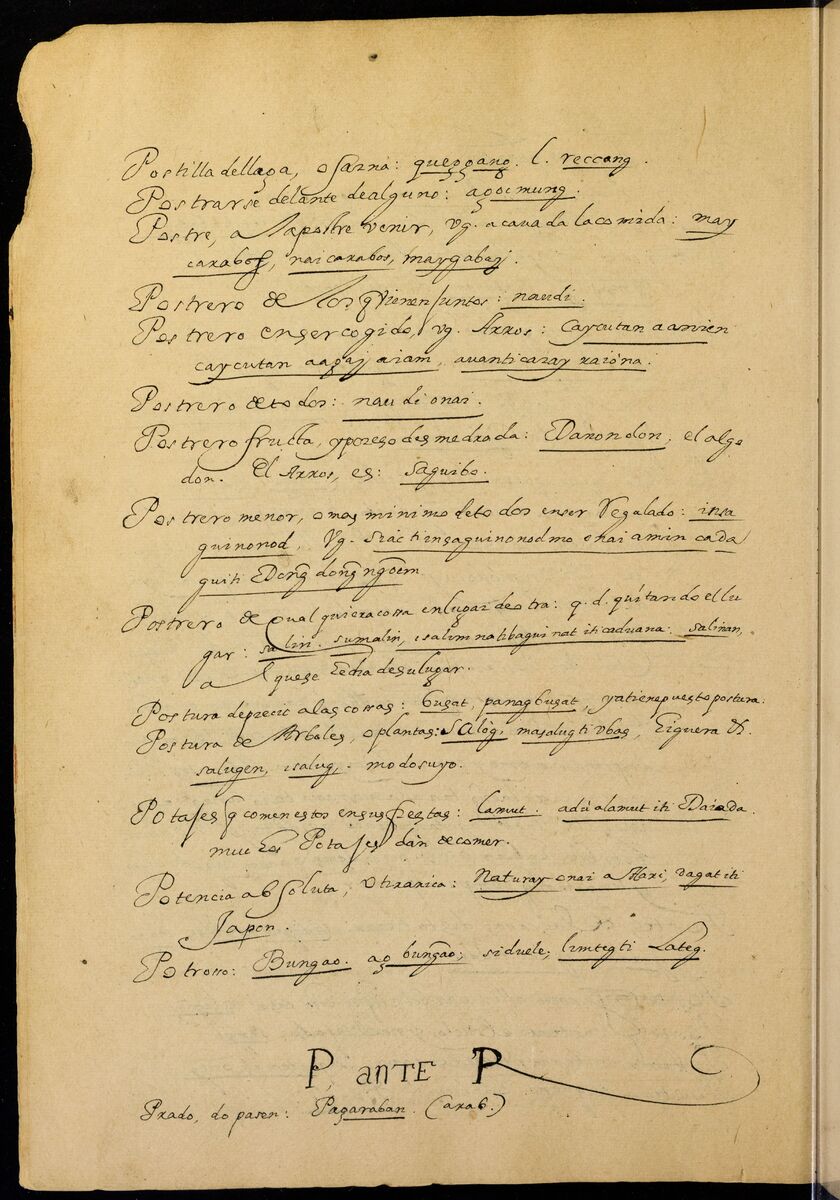 Postilla dellaga, o sarna: queggang. l. reccang.
Postrarse delante de alguno: agocmung.
Postre, a la postre venir, vg. acavada la comida: may
caraboſ, nai carabos, maygabaj.
Postrero de los q̃ vienen juntos: naudi.
Postrero en ser cogido, vg. Arros: Caycutan a anien
caycutan a apaj aiam, avanti caray raióna.
Postrero de todos: naudi onai.
Postrero fructa, y por eso desmedrada: Danondon, el algo
don. El Arros, es: saguibo.
Postrero menor, o mas minimo de todos en ser Regalado: insa
guinonod, Vg. siac ti insaguinonod mo onai amin cada
guiti
Postrero de qual quiera cossa en lugar de otra: q. d. quitando el lu
gar: salin. sumalin, isalim natibagui nat iti caduana: salinan,
a l que se Echa de su lugar.
Postura de precio a las cossas: bugat, panagbugat, ya tiene puesto postura.
Postura de Arboles, o plantas: sAlòg, masalug ti vbas, Higuera &.
salugen, isalug, modo suyo.
Potajes q̃ comen estos en sus fiestas: lamut. adú a lamut iti
muchos Potajes dàn de comer.
Potencia absoluta, o tiranica: Naturay onai a Hari, dagat iti
Japon.
Potroso: Bungao. ag bungao; si duele; limteg ti Lateg.
P, ANTE R
Prado, do pasen: Pagaraban. (arab.)